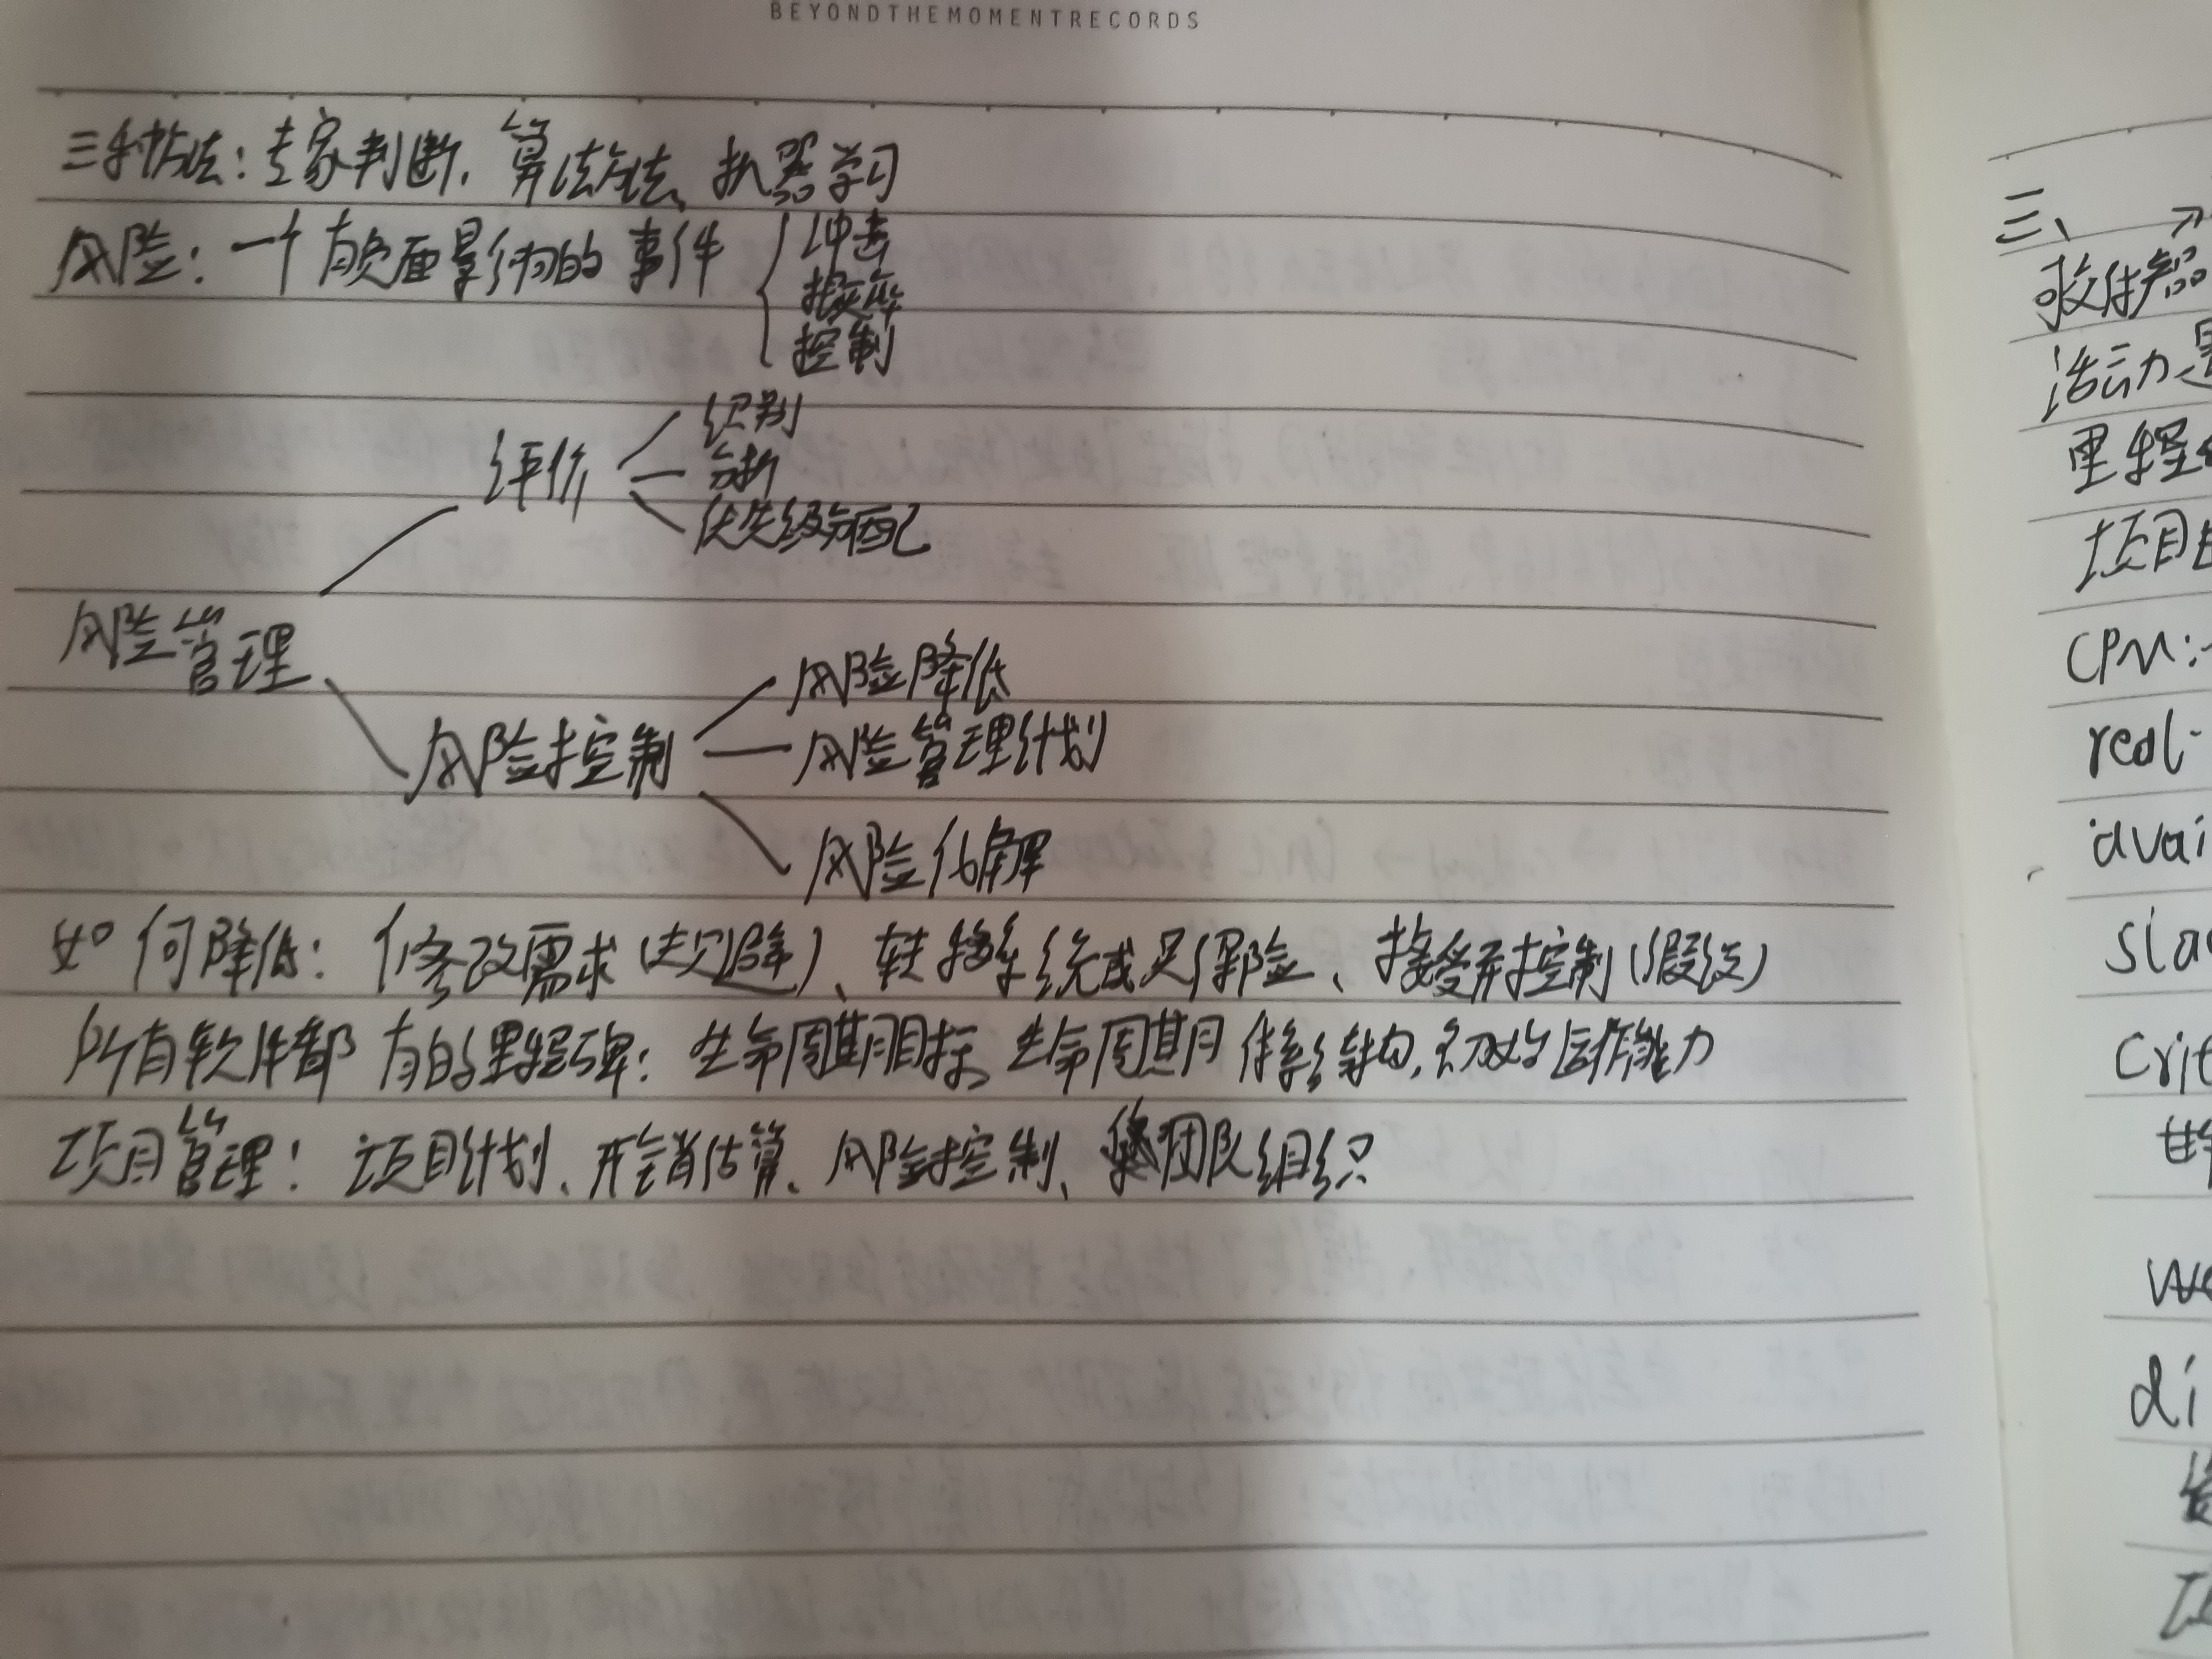 BEYONDTHEMOMENTRECORDS
三种方法：专家判断、算法方法、机器学习
风险：一个有负面影响的事件
冲击
概率
控制
评价
识别
分析
优先级分配
风险管理
风险控制
风险降低
风险管理计划
风险化解
如何降低：修改需求（规避）、转移系统或买保险、接受并控制（假设）
所有软件都有的里程碑：生命周期目标、生命周期体系结构、初始运作能力
项目管理：项目计划、开销估算、风险控制、团队组织
三、
软件
活动
里程
项目
CPM:
real-
avai
slac
Crit
di